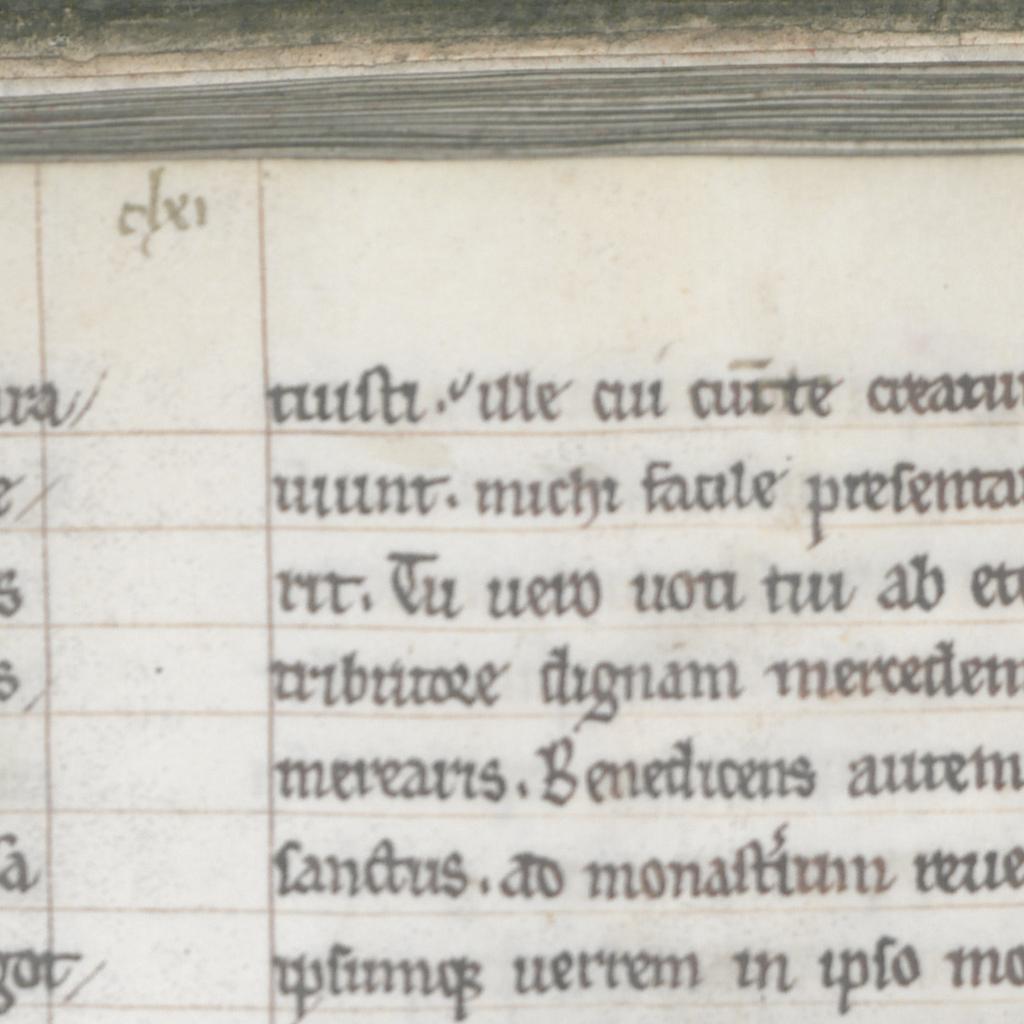 clxi
tuisti. ille cui cūcte creatu
uiunt. michi facile presenta
rit. Tu uero uoti tui ab ete
tributore dignam mercedem
merearis. Benedicens autem
sanctus. ad monast'ium reue
ipsumqꝫ uerrem in ipso mo